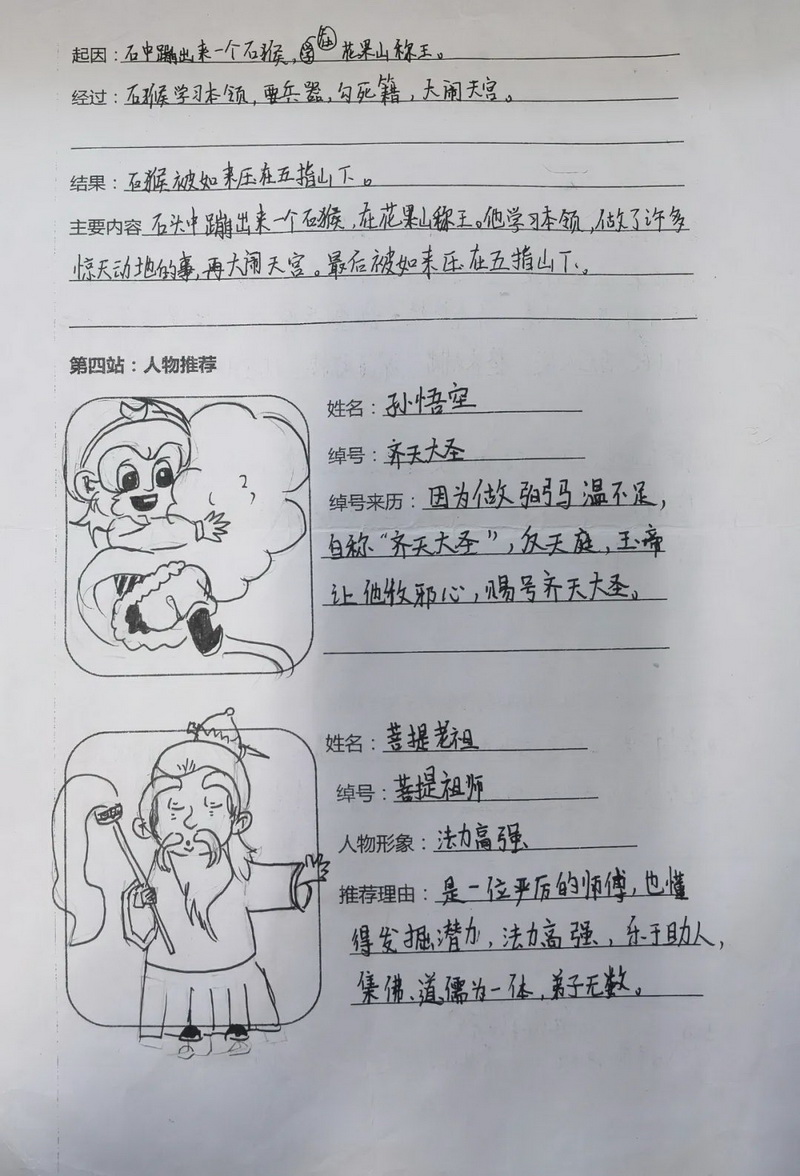 起因：石中蹦出来一个石猴，在花果山称王。
经过：石猴学习本领，要兵器，勾死籍，大闹天宫。
结果：石猴被如来压在五指山下。
主要内容 石头中蹦出来一个石猴，在花果山称王。他学习本领，做了许多
惊天动地的事，再大闹天宫。最后被如来压在五指山下。
第四站：人物推荐
姓名：孙悟空
绰号：齐天大圣
绰号来历：因为做弼马温不足，
自称“齐天大圣”，反天庭，玉帝
让他收邪心，赐号齐天大圣。
姓名：菩提老祖
绰号：菩提祖师
人物形象：法力高强
推荐理由：是一位严厉的师傅，也懂
得发掘潜力，法力高强，乐于助人，
集佛、道、儒为一体，弟子无数。